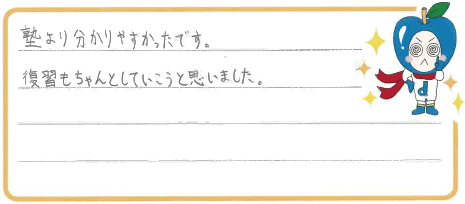 塾より分かりやすかったです。
復習もちゃんとしていこうと思いました。
d